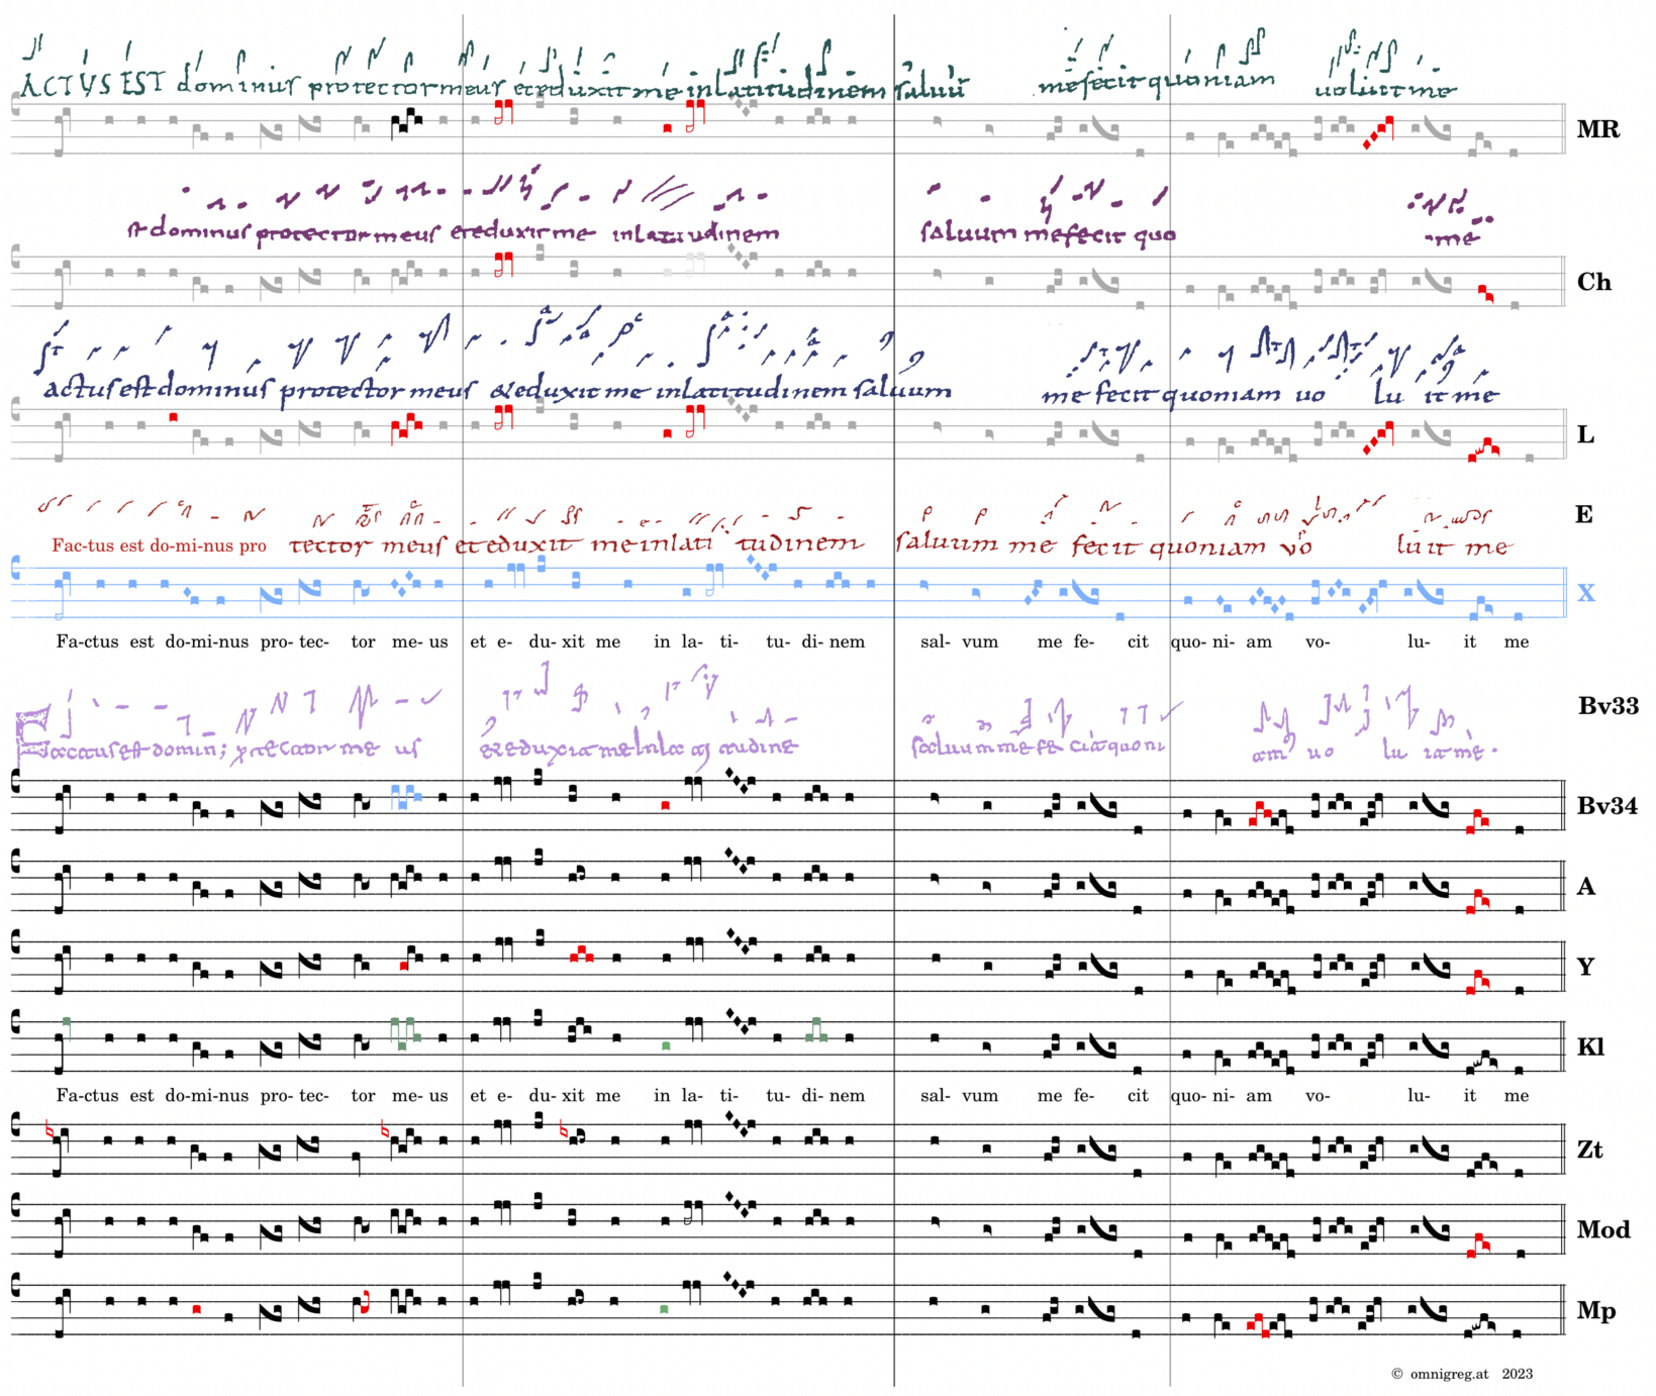 ACTUS EST dominus protector meus et eduxit me in latitudinem saluu me fecit quoniam uoluit me
MR
st dominus protector meus et eduxit me in latitudinem saluum me fecit quo me
Ch
actus est dominus protector meus & eduxit me in latitudinem saluum me fecit quoniam uo lu it me
L
E
Fac-tus est do-mi-nus pro tector meus et eduxit me in lati tudinem saluum me fecit quoniam vo lu it me
X
Fa-ctus est do-mi-nus pro- tec- tor me- us et e- du- xit me in la- ti- tu- di- nem sal- vum me fe- cit quo- ni- am vo- lu- it me
Bv33
Bv34
A
Y
Kl
Fa-ctus est do-mi-nus pro- tec- tor me- us et e- du- xit me in la- ti- tu- di- nem sal- vum me fe- cit quo- ni- am vo- lu- it me
Zt
Mod
Mp
© omnigreg.at 2023